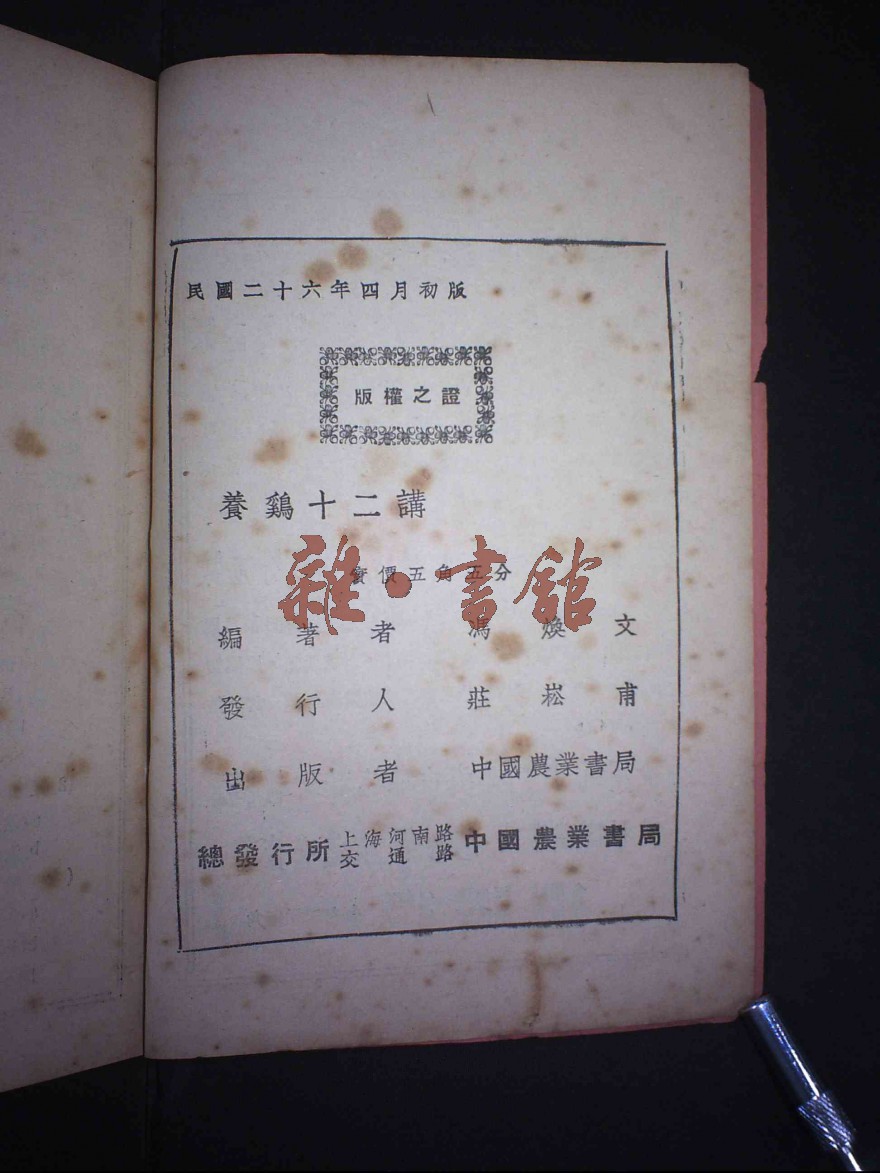 民國二十六年四月初版
版權之證
養鷄十二講
實價五角五分
雜·書館
編著者 馮煥文
發行人 莊崧甫
出版者 中國農業書局
總發行所 上海河南路交通路 中國農業書局